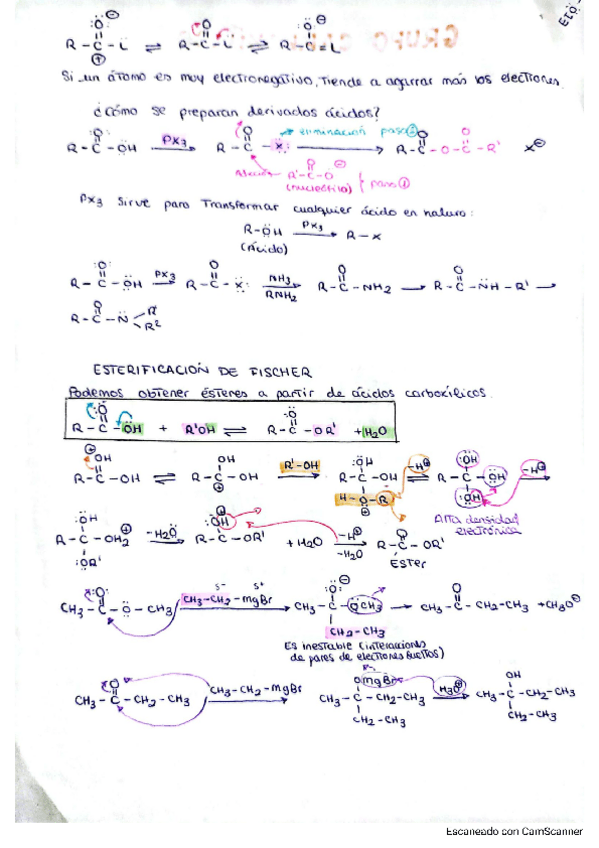 R-C-L ⇌ R-C-L ⇌ R-C=L
Si un átomo es muy electronegativo, tiende a agarrar más los electrones.
¿Cómo se preparan derivados ácidos?
eliminación paso ②
R-C-ÖH PX3 R-C-X: R-C-O-C-R' X⊖
Ataca R'-C-O⊖
(nucleofílico) } paso ①
PX3 Sirve para Transformar cualquier ácido en haluro:
R-ÖH PX3 R-X
(Ácido)
R-C-ÖH PX3 R-C-X: NH3 RNH2 R-C-NH2 → R-C-NH-R' →
R-C-N R' R2
ESTERIFICACIÓN DE FISCHER
Podemos obtener ésteres a partir de ácidos carboxílicos.
R-C-ÖH + R'OH ⇌ R-C-OR' + H2O
R-C-OH ⇌ R-C-OH R'-OH R-C-OH -H⊕ R-C-ÖH -H⊕
H-O-R
Alta densidad
electrónica
R-C-OH2 -H2O R-C-OR' + H2O -H⊕ -H2O R-C-OR'
:OR'
ÉSTER
CH3-C-O-CH3 CH3-CH2-MgBr CH3-C-OCH3 → CH3-C-CH2-CH3 + CH3O⊖
CH2-CH3
Es inestable (interacciones
de pares de electrones sueltos)
CH3-C-CH2-CH3 CH3-CH2-MgBr OMgBr CH3-C-CH2-CH3 H3O⊕ OH CH3-C-CH2-CH3
CH2-CH3 CH2-CH3
Escaneado con CamScanner